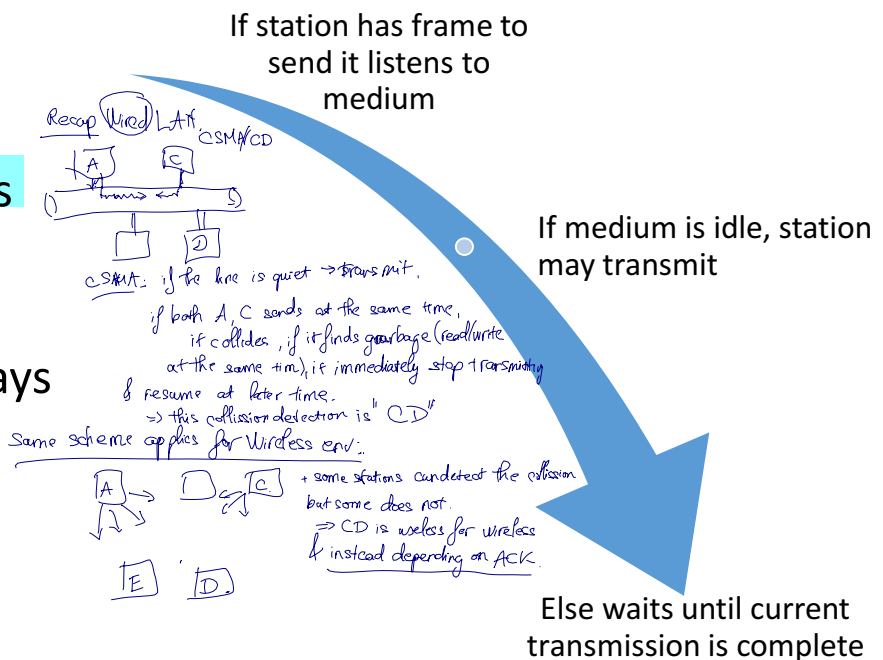 If station has frame to
send it listens to
medium
Recap Wired LAN.
CSMA/CD
A
C
s
D
If medium is idle, station
may transmit
CSMA: if the line is quiet → transmit.
if both A, C sends at the same time,
it collides, if it finds garbage (read/write
at the same tim), it immediately stop transmitting
& resume at later time.
ays
⇒ this collission detection is "CD"
Same scheme applies for Wireless env:
A
C
+ some stations can detect the collission
but some does not.
⇒ CD is useless for wireless
& instead depending on ACK.
E
D
Else waits until current
transmission is complete